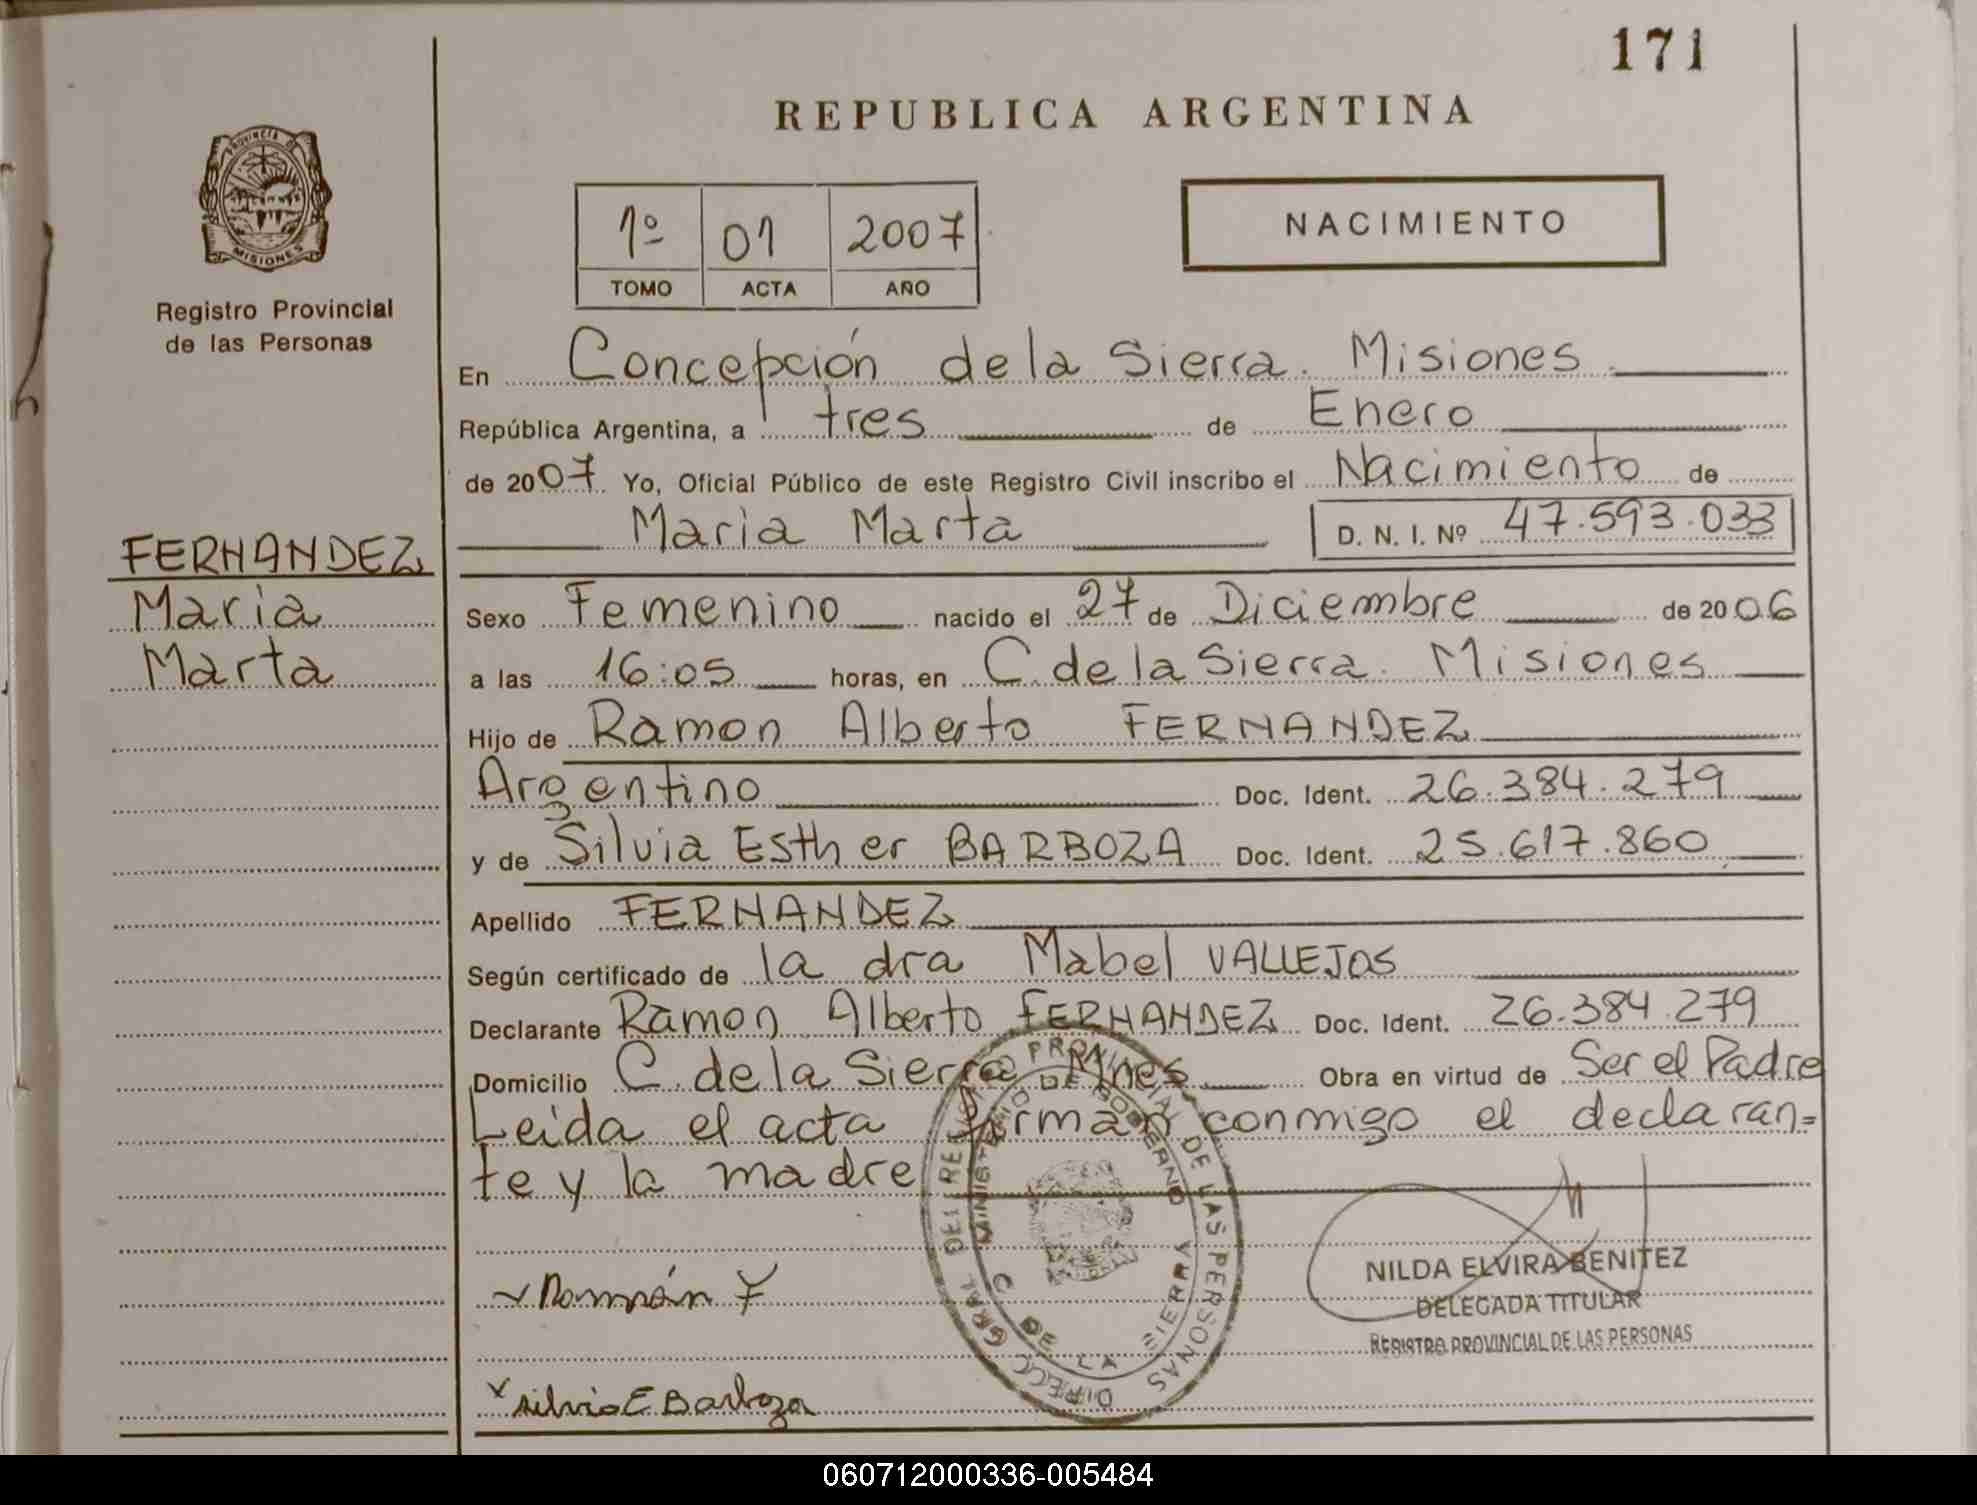 171
REPUBLICA ARGENTINA
PROVINCIA DE
MISIONES
Registro Provincial
de las Personas
1º 01 2007
TOMO ACTA AÑO
NACIMIENTO
En Concepción de la Sierra. Misiones
República Argentina, a tres de Enero
de 2007 Yo, Oficial Público de este Registro Civil inscribo el Nacimiento de
Maria Marta D. N. I. Nº 47.593.033
FERNANDEZ
Maria
Marta
Sexo Femenino nacido el 27 de Diciembre de 2006
a las 16:05 horas, en C. de la Sierra. Misiones
Hijo de Ramon Alberto FERNANDEZ
Argentino Doc. Ident. 26.384.279
y de Silvia Esther BARBOZA Doc. Ident. 25.617.860
Apellido FERNANDEZ
Según certificado de la dra Mabel VALLEJOS
Declarante Ramon Alberto FERNANDEZ Doc. Ident. 26.384.279
Domicilio C. de la Sierra Mnes Obra en virtud de Ser el Padre
Leida el acta firman conmigo el declaran=
te y la madre
DIRECC GRAL DEL REGISTRO PROVINCIAL DE LAS PERSONAS
MINISTERIO DE GOBIERNO
C DE LA SIERRA
Ramón F
Silvia E Barboza
NILDA ELVIRA BENITEZ
DELEGADA TITULAR
REGISTRO PROVINCIAL DE LAS PERSONAS
060712000336-005484